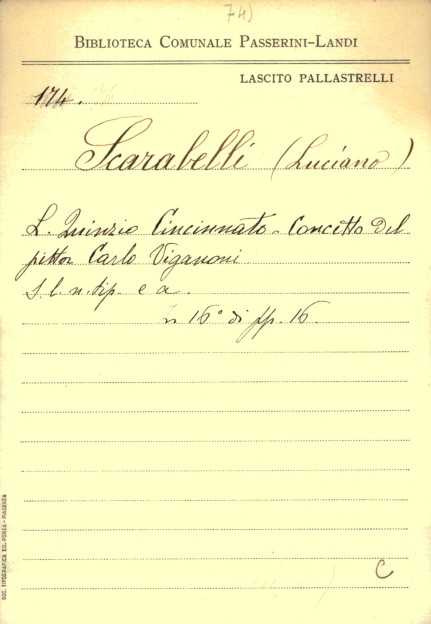 74)
BIBLIOTECA COMUNALE PASSERINI-LANDI
LASCITO PALLASTRELLI
174.
Scarabelli (Luciano)
L. Quinzio Cincinnato - Concetto del
pittor Carlo Viganoni
s. l. n. tip. e a.
in 16° di pp. 16.
C
SOC. TIPOGRAFICA ED. PORTA - PIACENZA